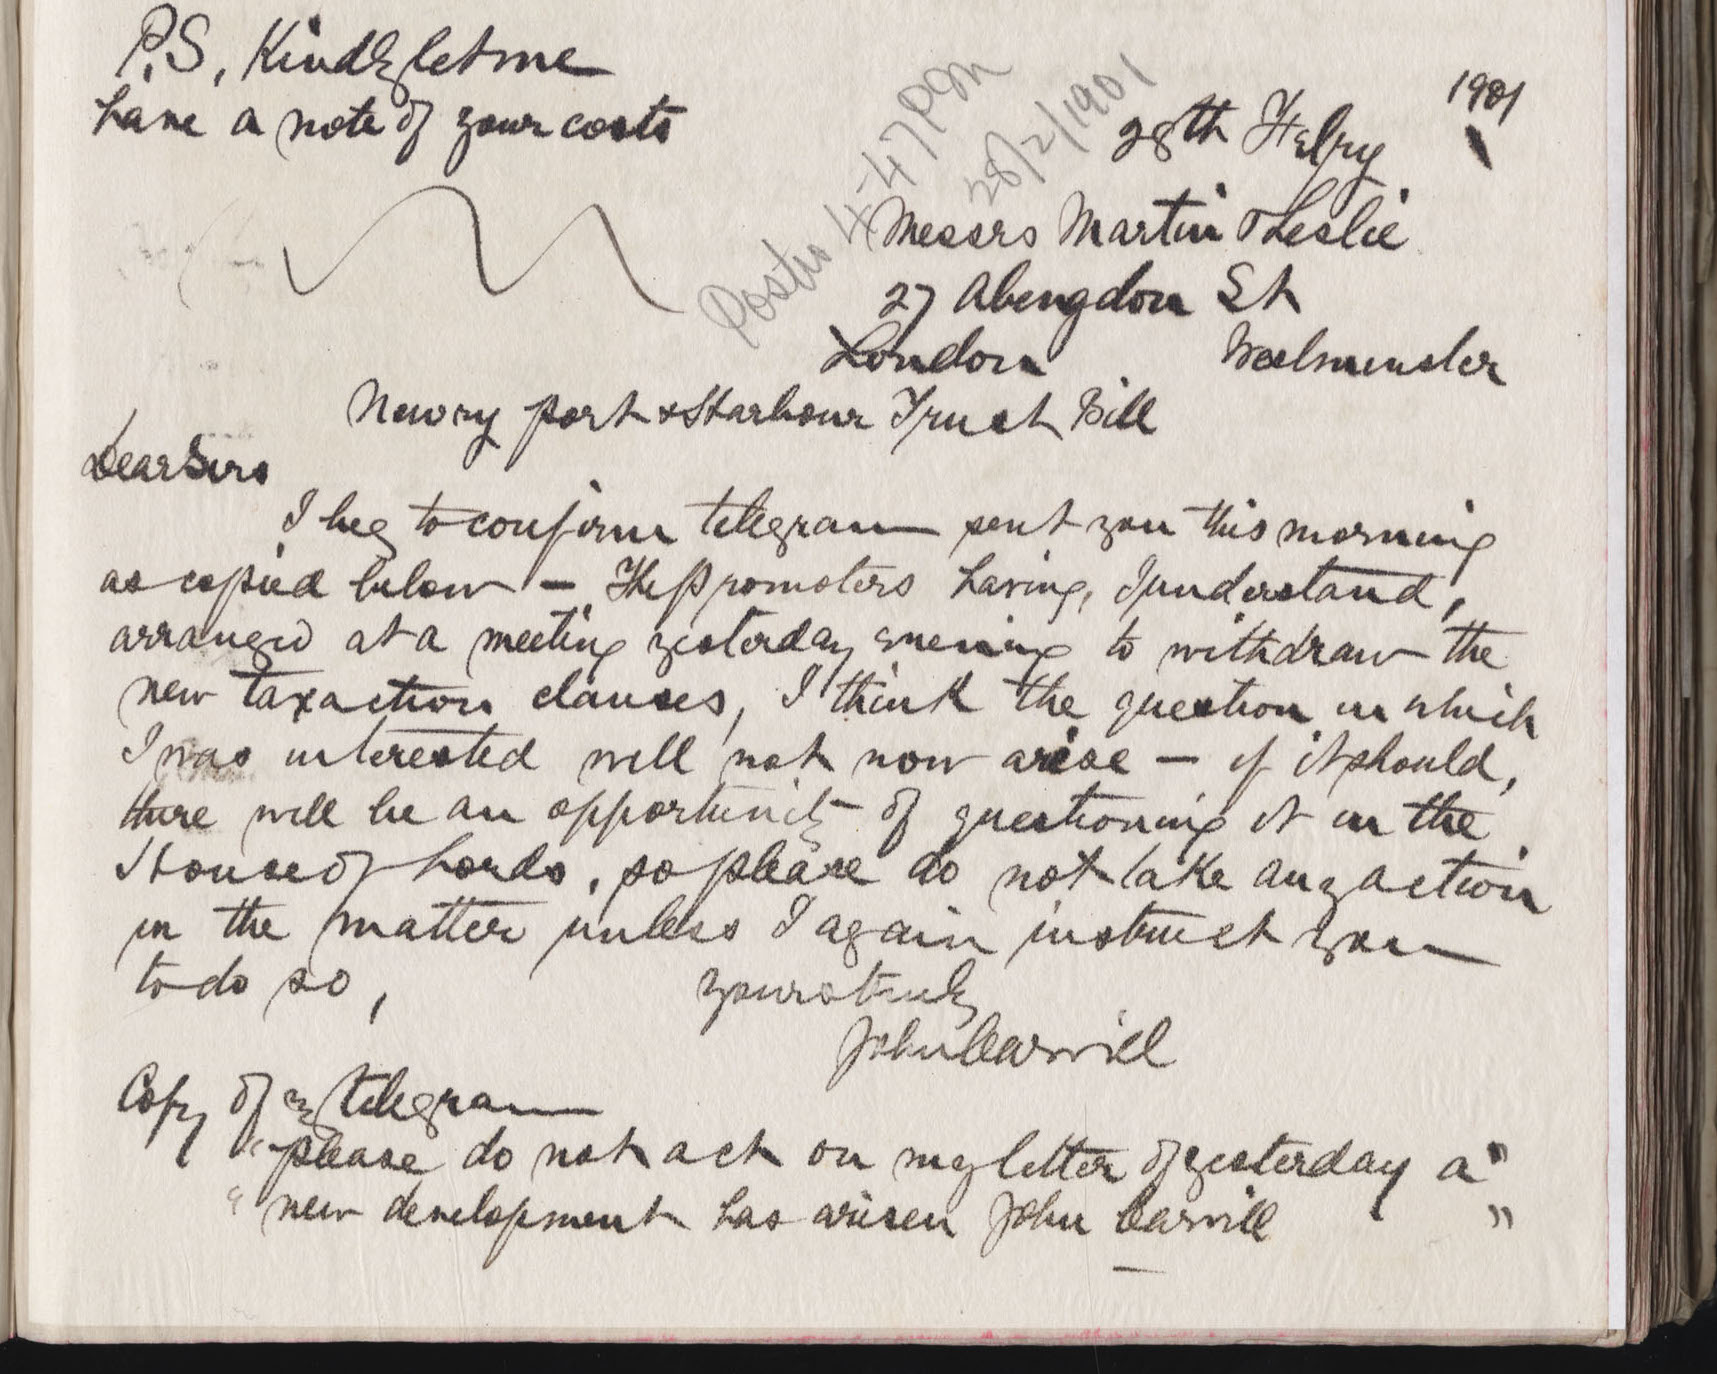 P.S, Kindly let me
have a note of your costs
Posted 4-47 pm
28/2/1901
28th Feby 1901
Messrs Martin & Leslie
27 Abengdon St
London Westminster
Newry port & Harbour Trust Bill
Dear Sirs
I beg to confirm telegram sent you this morning
as copied below - The promoters having, I understand,
arranged at a meeting yesterday evening to withdraw the
new taxaction clauses, I think the question in which
I was interested will not now arise - if it should,
there will be an opportunity of questioning it in the
House of Lords, so please do not take any action
in the matter unless I again instruct you
to do so,
yours truly
John Carvill
Copy of my telegram
"please do not act on my letter of yesterday a"
"new development has arisen John Carvill"